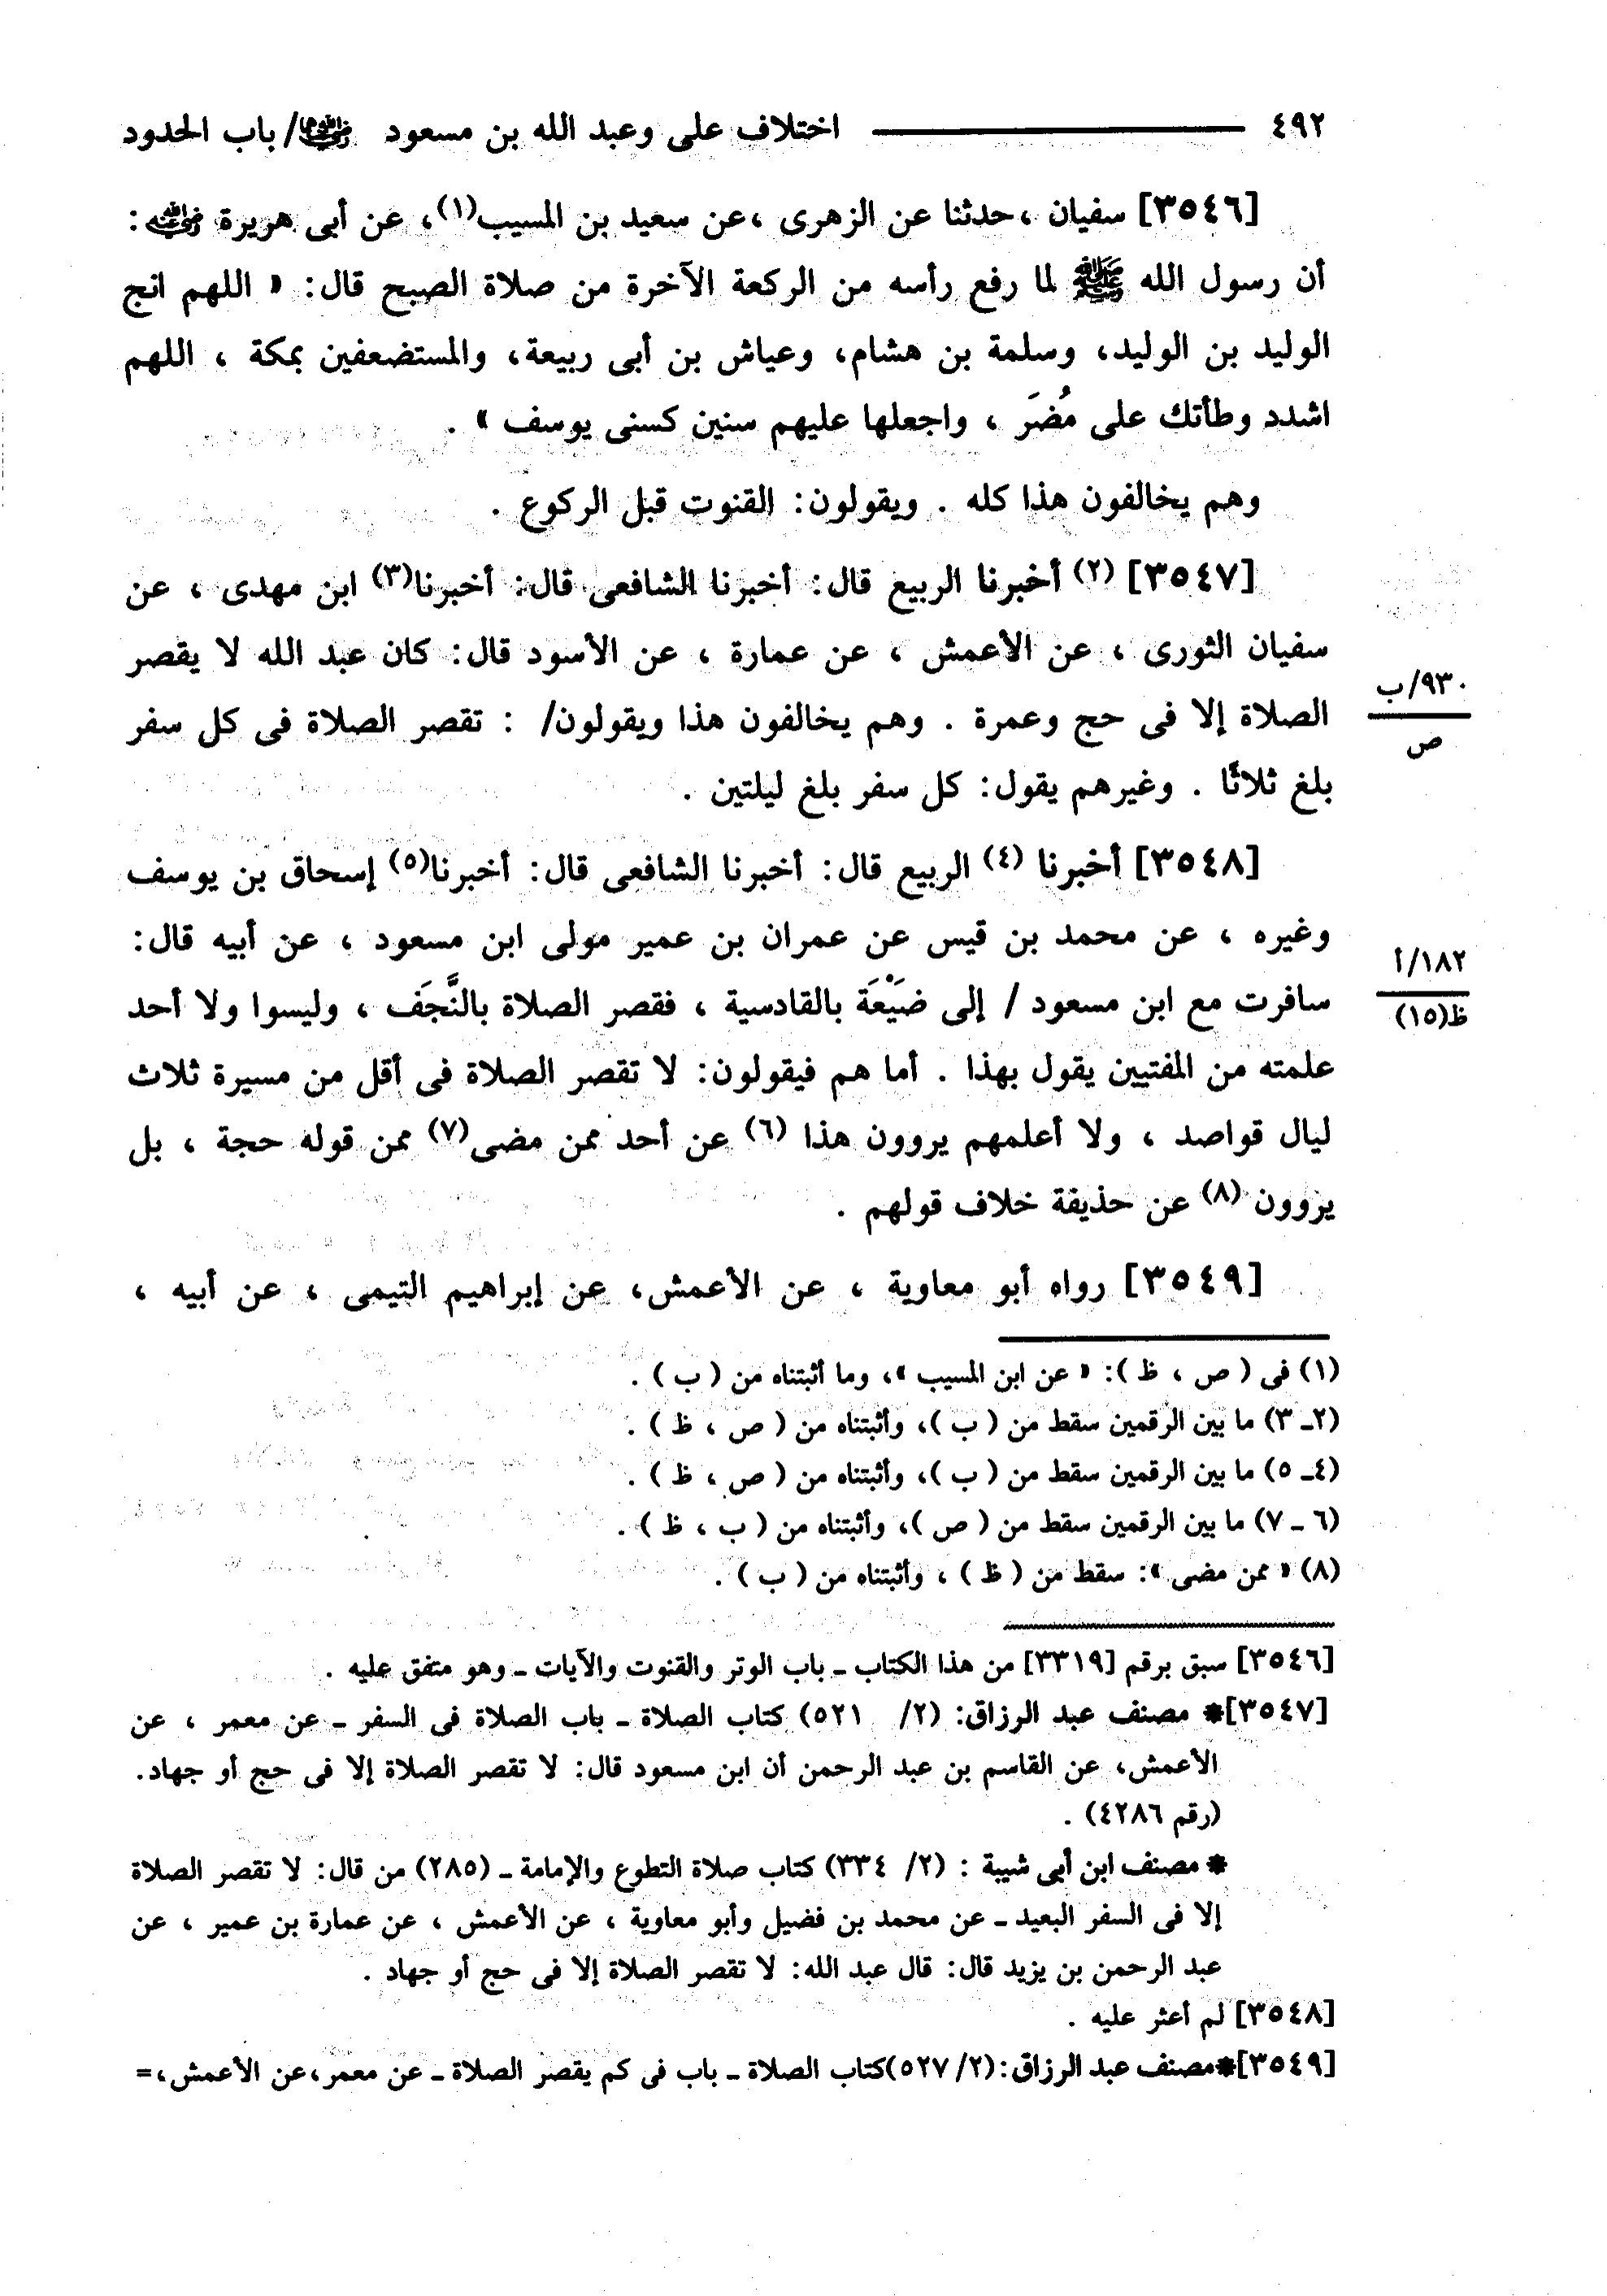 ٤٩٢ ـــــــ اختلاف على وعبد الله بن مسعود رضي الله عنهما/ باب الحدود
[٣٥٤٦] سفيان ، حدثنا عن الزهرى ، عن سعيد بن المسيب(١)، عن أبى هريرة رضي الله عنه :
أن رسول الله ﷺ لما رفع رأسه من الركعة الآخرة من صلاة الصبح قال: « اللهم انج
الوليد بن الوليد، وسلمة بن هشام، وعياش بن أبى ربيعة، والمستضعفين بمكة ، اللهم
اشدد وطأتك على مُضَر ، واجعلها عليهم سنين كسنى يوسف » .
وهم يخالفون هذا كله . ويقولون: القنوت قبل الركوع .
[٣٥٤٧] (٢) أخبرنا الربيع قال: أخبرنا الشافعى قال: أخبرنا(٣) ابن مهدى ، عن
سفيان الثورى ، عن الأعمش ، عن عمارة ، عن الأسود قال: كان عبد الله لا يقصر
الصلاة إلا فى حج وعمرة . وهم يخالفون هذا ويقولون/ : تقصر الصلاة فى كل سفر
٩٣٠/ب
ص
بلغ ثلاثًا . وغيرهم يقول: كل سفر بلغ ليلتين .
[٣٥٤٨] أخبرنا (٤) الربيع قال: أخبرنا الشافعى قال: أخبرنا(٥) إسحاق بن يوسف
وغيره ، عن محمد بن قيس عن عمران بن عمير مولى ابن مسعود ، عن أبيه قال:
سافرت مع ابن مسعود / إلى ضَيْعَة بالقادسية ، فقصر الصلاة بالنَّجَف ، وليسوا ولا أحد
١٨٢/أ
ظ(١٥)
علمته من المفتيين يقول بهذا . أما هم فيقولون: لا تقصر الصلاة فى أقل من مسيرة ثلاث
ليال قواصد ، ولا أعلمهم يروون هذا (٦) عن أحد ممن مضى(٧) ممن قوله حجة ، بل
يروون (٨) عن حذيفة خلاف قولهم .
[٣٥٤٩] رواه أبو معاوية ، عن الأعمش، عن إبراهيم التيمى ، عن أبيه ،
(١) فى ( ص ، ظ ): « عن ابن المسيب »، وما أثبتناه من ( ب ) .
(٢ـ ٣) ما بين الرقمين سقط من ( ب )، وأثبتناه من ( ص ، ظ ) .
(٤ـ ٥) ما بين الرقمين سقط من ( ب )، وأثبتناه من ( ص ، ظ ) .
(٦ ـ ٧) ما بين الرقمين سقط من ( ص )، وأثبتناه من ( ب ، ظ ) .
(٨) « ممن مضى »: سقط من ( ظ ) ، وأثبتناه من ( ب ) .
[٣٥٤٦] سبق برقم [٣٣١٩] من هذا الكتاب ـ باب الوتر والقنوت والآيات ـ وهو متفق عليه .
[٣٥٤٧]* مصنف عبد الرزاق: (٢/ ٥٢١) كتاب الصلاة ـ باب الصلاة فى السفر ـ عن معمر ، عن
الأعمش، عن القاسم بن عبد الرحمن أن ابن مسعود قال: لا تقصر الصلاة إلا فى حج أو جهاد.
(رقم ٤٢٨٦) .
* مصنف ابن أبى شيبة : (٢/ ٣٣٤) كتاب صلاة التطوع والإمامة ـ (٢٨٥) من قال: لا تقصر الصلاة
إلا فى السفر البعيد ـ عن محمد بن فضيل وأبو معاوية ، عن الأعمش ، عن عمارة بن عمير ، عن
عبد الرحمن بن يزيد قال: قال عبد الله: لا تقصر الصلاة إلا فى حج أو جهاد .
[٣٥٤٨] لم أعثر عليه .
[٣٥٤٩]*مصنف عبد الرزاق:(٢/ ٥٢٧)كتاب الصلاة ـ باب فى كم يقصر الصلاة ـ عن معمر،عن الأعمش،=